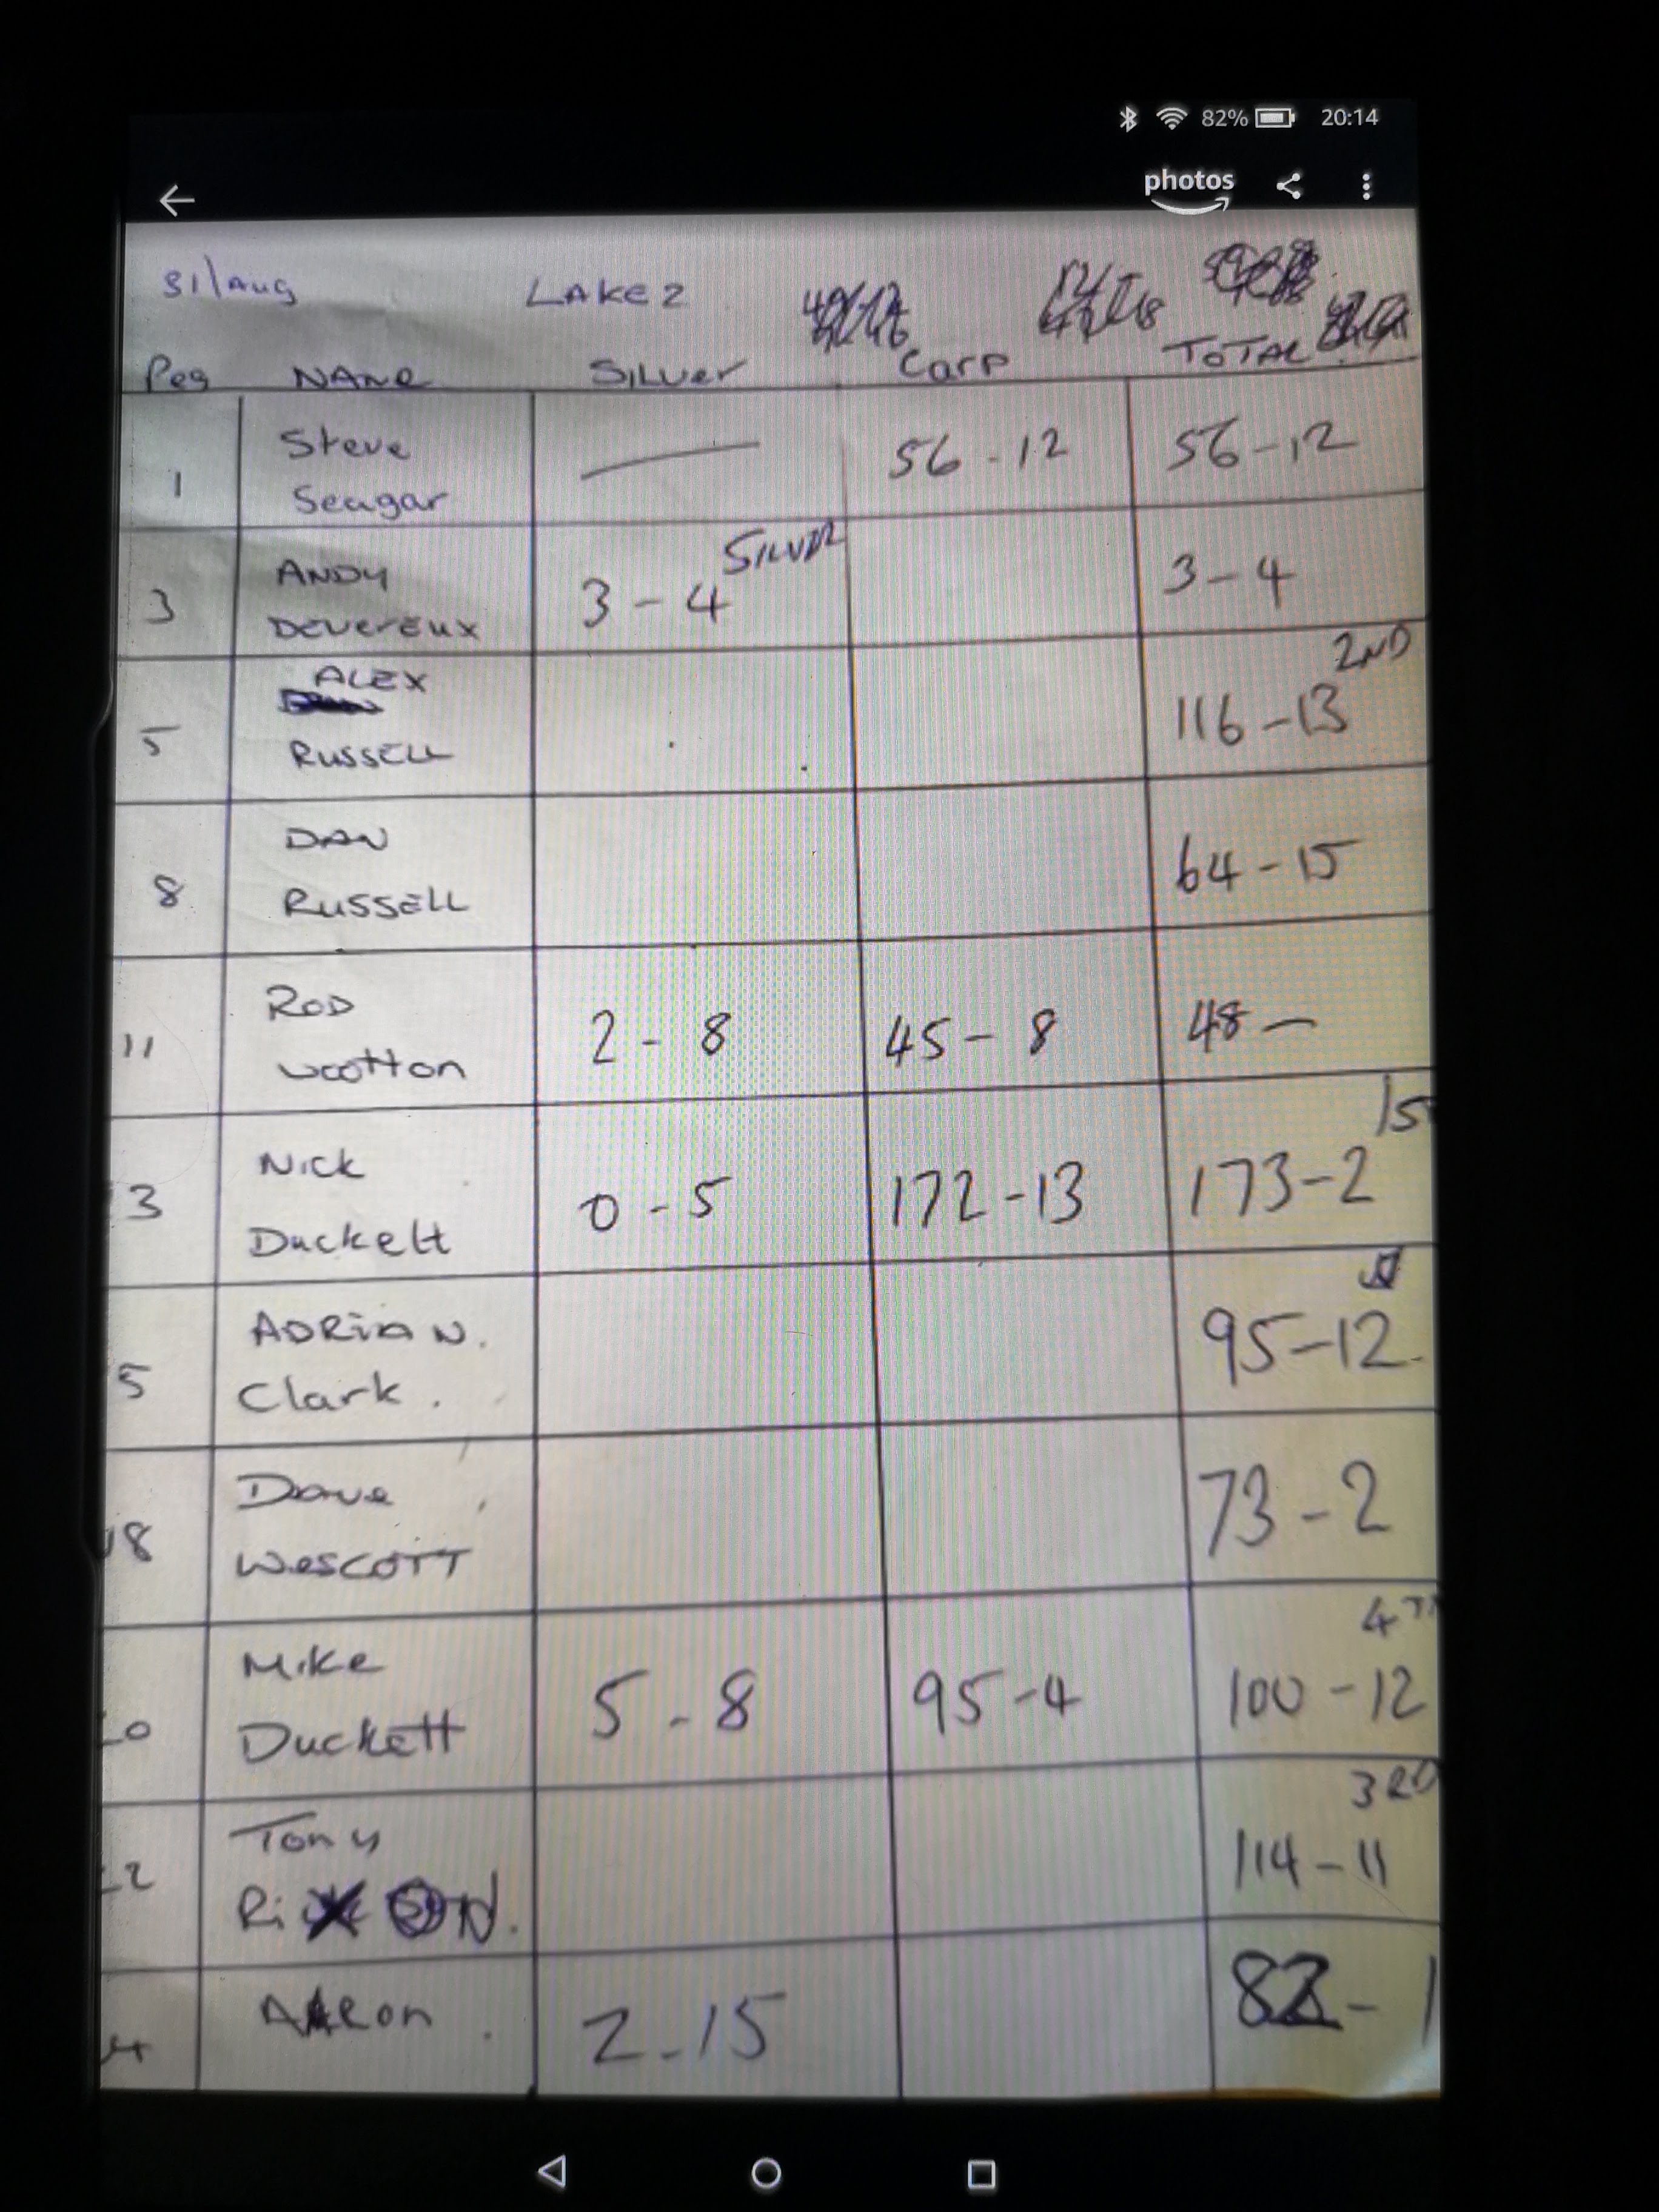 82% 20:14
photos
31/Aug LAKE 2
Peg NAME Silver Carp TOTAL
1 Steve Seagar — 56-12 56-12
3 ANDY DEVEREUX 3-4 SILVER 3-4
5 ALEX RUSSELL 116-13 2ND
8 DAN RUSSELL 64-15
11 ROD Wootton 2-8 45-8 48—
3 Nick Duckett 0-5 172-13 173-2 1S
5 ADRIAN. Clark. 95-12.
18 Dave WESCOTT 73-2
0 Mike Duckett 5-8 95-4 100-12 4T
2 Tony 114-11 3RD
4 AARON. 2-15 82-1